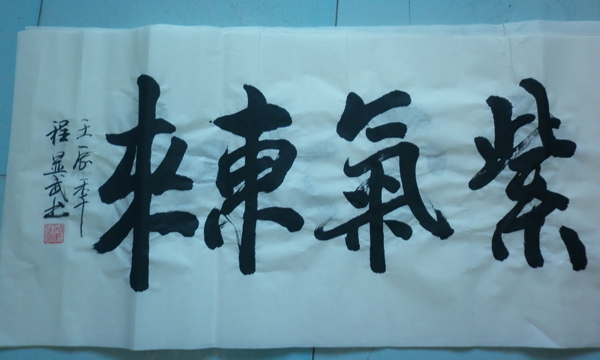 紫氣東来
壬辰年
程显武书